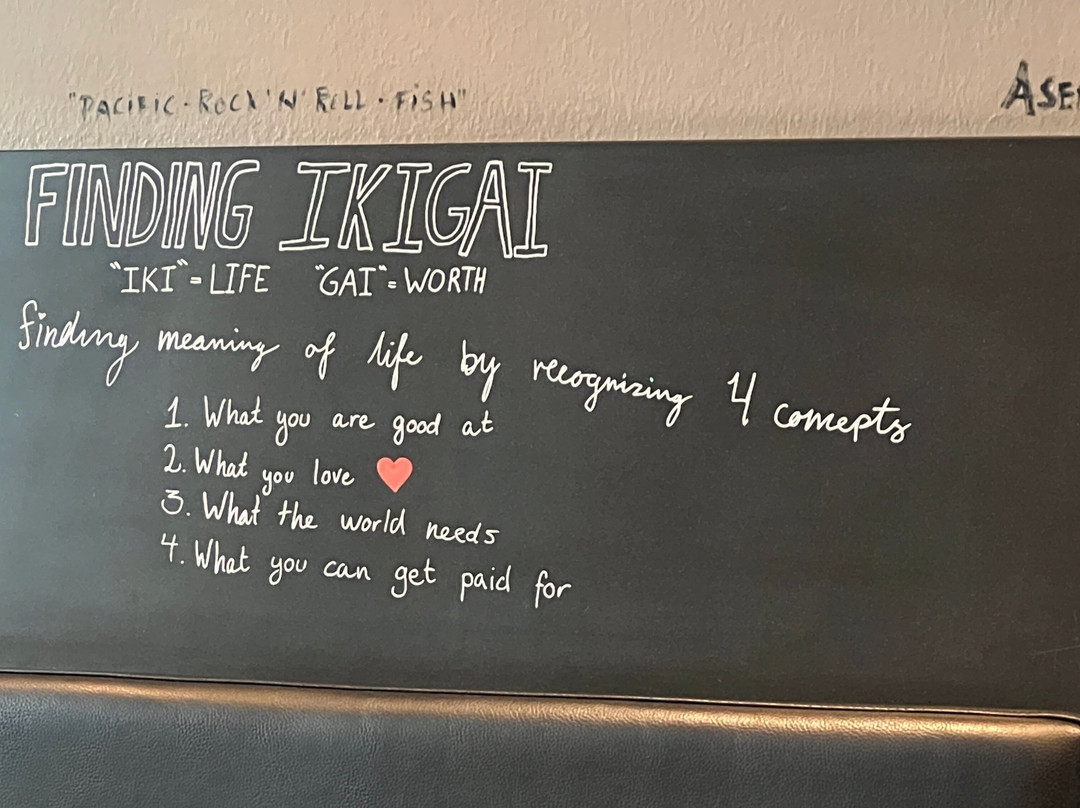 "PACIFIC · ROCK 'N' ROLL · FISH"
FINDING IKIGAI
"IKI" = LIFE "GAI" = WORTH
finding meaning of life by recognizing 4 concepts
1. What you are good at
2. What you love ❤
3. What the world needs
4. What you can get paid for